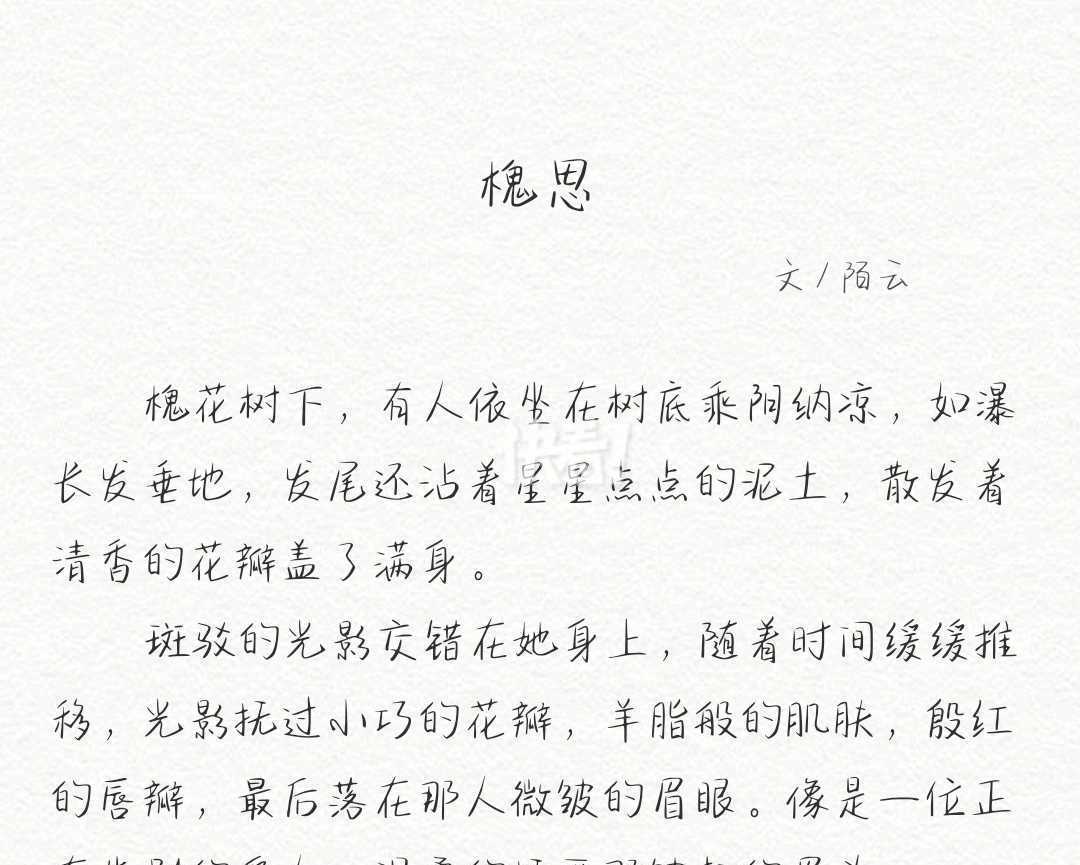 槐思
文/陌云
槐花树下，有人依坐在树底乘阴纳凉，如瀑
长发垂地，发尾还沾着星星点点的泥土，散发着
清香的花瓣盖了满身。
快看!
斑驳的光影交错在她身上，随着时间缓缓推
移，光影抚过小巧的花瓣，羊脂般的肌肤，殷红
的唇瓣，最后落在那人微皱的眉眼。像是一位正